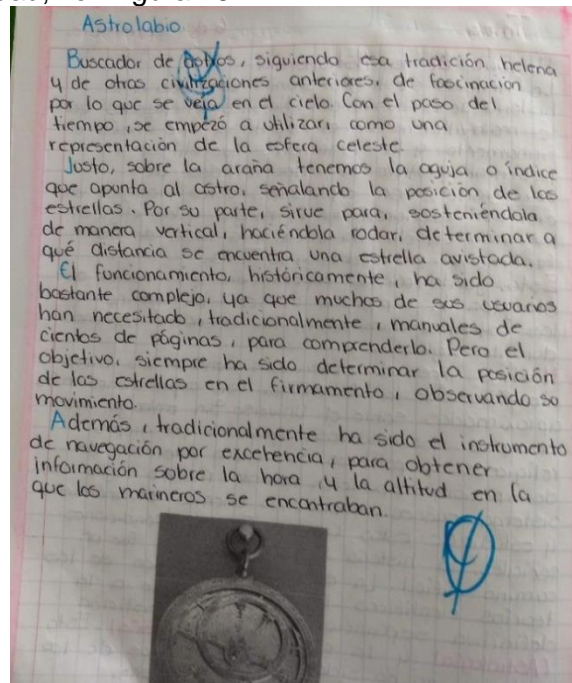 Astrolabio.
Buscador de astros, siguiendo esa tradición helena
y de otras civilizaciones anteriores, de fascinación
por lo que se veía en el cielo. Con el paso del
tiempo, se empezó a utilizar, como una
representación de la esfera celeste.
Justo, sobre la araña tenemos la aguja o índice
que apunta al astro, señalando la posición de las
estrellas. Por su parte, sirve para, sosteniéndola
de manera vertical, haciéndola rodar, determinar a
qué distancia se encuentra una estrella avistada.
El funcionamiento, históricamente, ha sido
bastante complejo, ya que muchos de sus usuarios
han necesitado, tradicionalmente, manuales de
cientos de páginas, para comprenderlo. Pero el
objetivo, siempre ha sido determinar la posición
de las estrellas en el firmamento, observando su
movimiento.
Además, tradicionalmente ha sido el instrumento
de navegación por excelencia, para obtener
información sobre la hora y la altitud en la
que los marineros se encontraban.